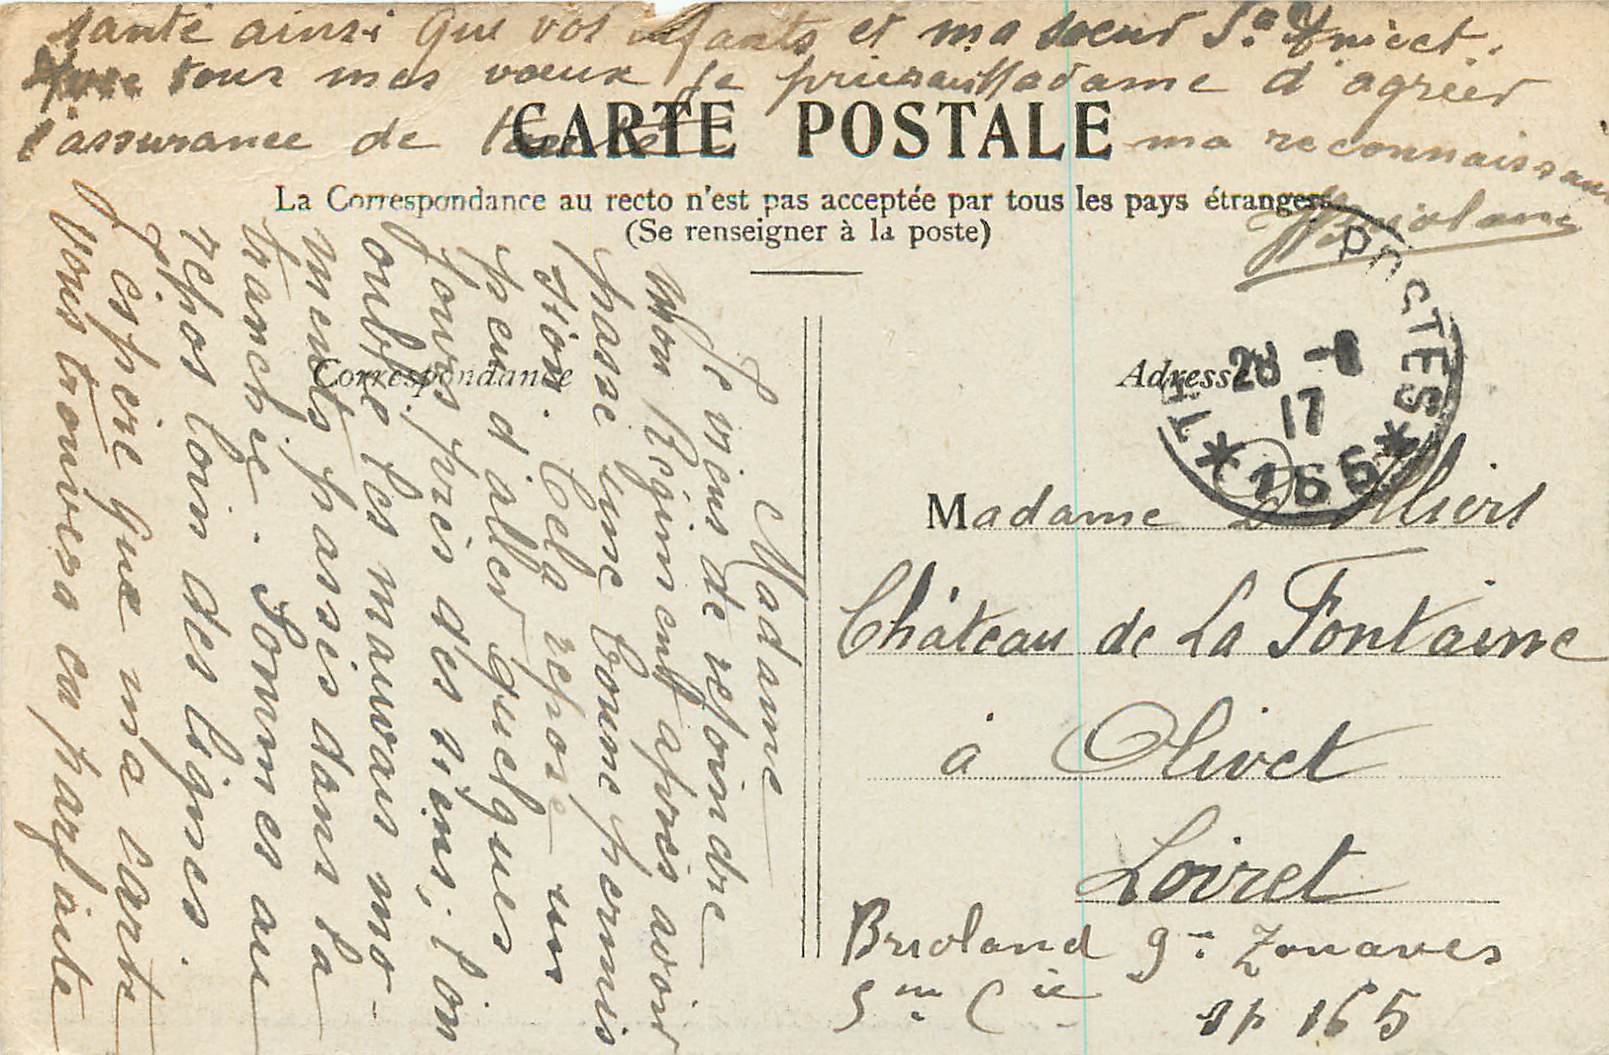 CARTE POSTALE
La Correspondance au recto n'est pas acceptée par tous les pays étrangers
(Se renseigner à la poste)
Correspondance
Madame
Je viens de rejoindre
Mon Régiment après avoir
passé une bonne permis
sion. Cela repose un
peu d'aller quelques
jours près des siens, l'on
oublie les mauvais mo-
ments passés dans la
tranchée. Sommes au
repos loin des lignes.
J'espère que ma carte
vous trouvera en parfaite
santé ainsi que vos enfants et ma soeur Ste
tous mes voeux je prierai Madame d'agréer
l'assurance de ma reconnaissance
Brioland
Adresse
POSTES
28 -8
17
* 166 *
Madame D'Illiers
Château de La Fontaine
à Olivet
Loiret
Brioland 9me Zouaves
5me Cie sp 165